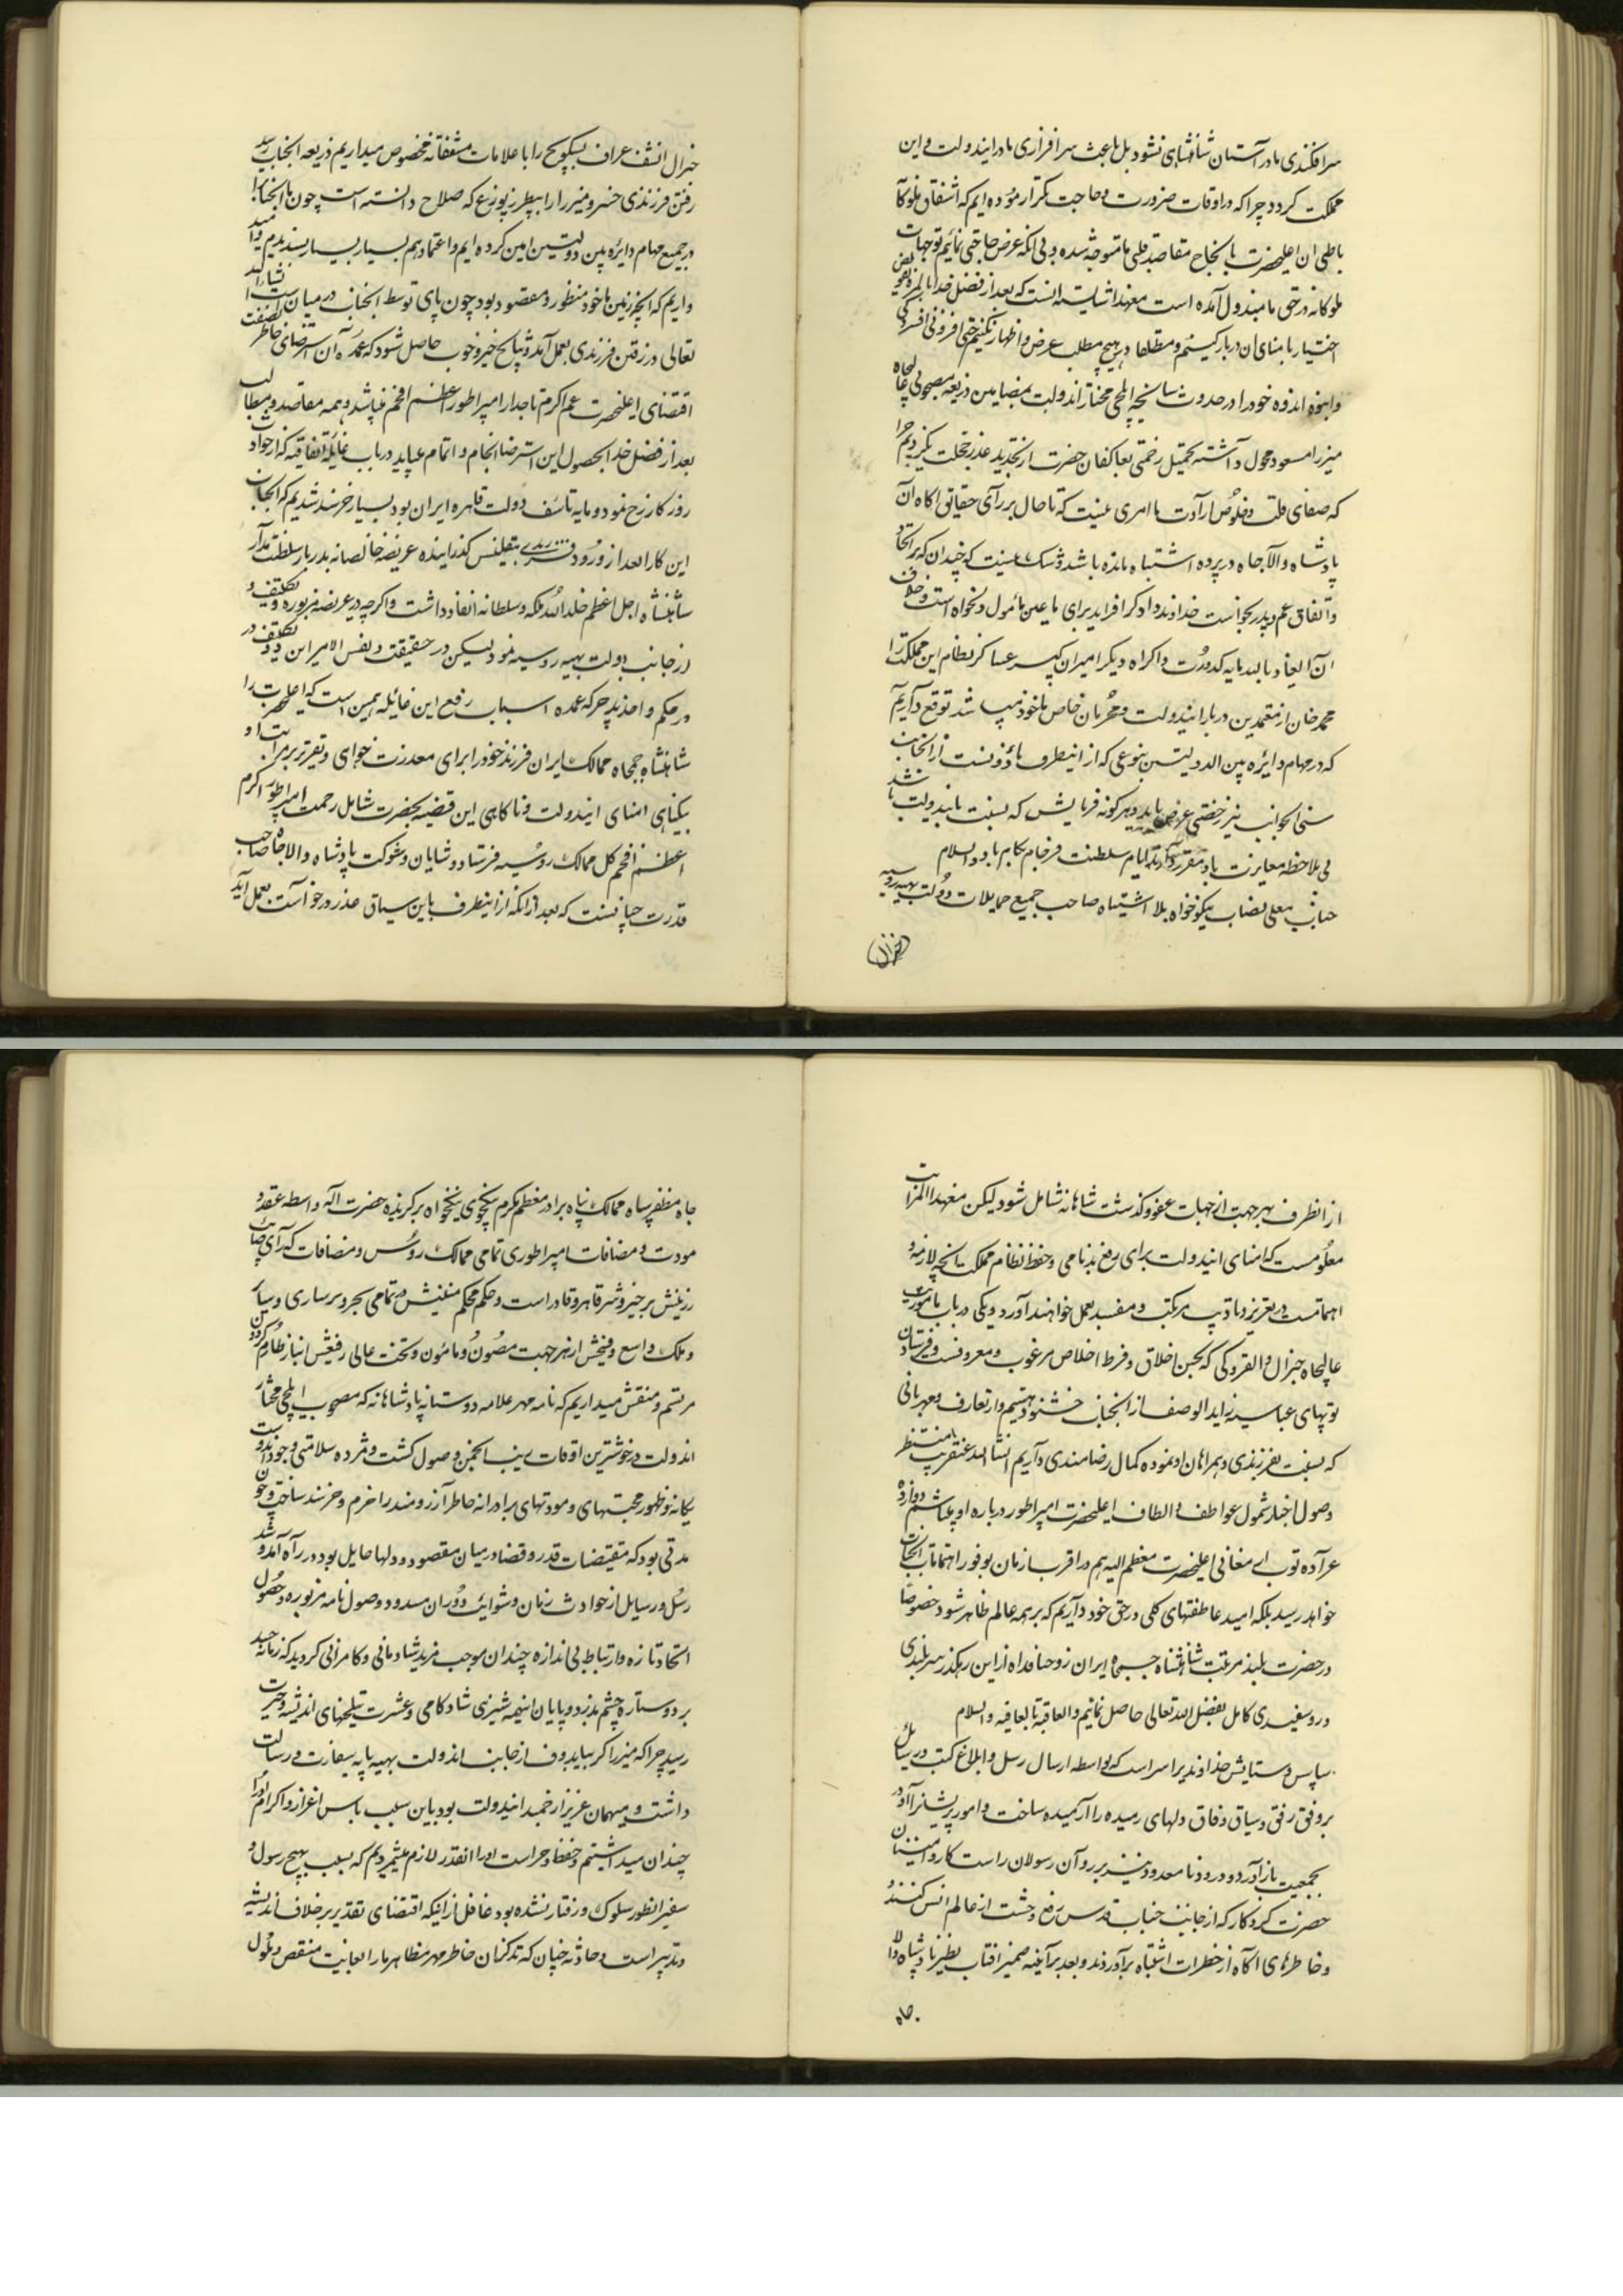 سرافکندی ما در آستان شاهنشاهی نشود بل باعث سرافرازی ما در ایندولت و این
مملکت گردد چرا که در اوقات ضرورت و حاجت بتکرار آزموده ایم که اشفاق ملوکانه
باطنی آن اعلیحضرت بانجاح مقاصد قلبی ما متوجه شده و بی آنکه عرض حاجتی نمائیم توجهات
ملوکانه در حق ما مبذول آمده است معهذا شایسته آنست که بعد از فضل خدا بالمره تفویض
اختیار با منای آن دربار کنیم و مطلقا در هیچ مطلب عرض و اظهار نکنیم حتی افزونی افسردگی
و انبوه اندوه خود را در حدوث سانحه ایلچی مختار آندولت بمضامین ذریعه مصحوبی عالیجاه
میرزا مسعود محول داشته بتحمیل زحمتی بعاکفان حضرت از تجدید عذر خجلت نگزیدیم چرا
که صفای قلب و خلوص ارادت ما امری نیست که تا حال بر رأی حقایق آگاه آن
پادشاه والاجاه در پرده اشتباه مانده باشد و شک نیست که چندان که بر اتحاد
و اتفاق عم و پدر بجوانست خداوند دادگر افزاید برای ما عین مأمول و دلخواه است و خلاف
آن العیاذ بالله مایه کدورت و اکراه دیگر امیران کبیر عساکر نظام این مملکت را
محمد خان از معتمدین دربار ایندولت و محرمان خاص ما خود میباشد توقع داریم
که در مهام دایره بین الدولتین بنوعی که از اینطرف ماذونست از آنجانب
سنی الجوانب نیز رخصتی عرض یابد و هر گونه فرمایش که بنسبت باندولت باشد
بی ملاحظه مغایرت باو مقرر دارند ایام سلطنت فرجام بکام باد والسلام
جناب معلی نصاب نیکوخواه بلا اشتباه صاحب جمیع حمایلات دولت بهیه روسیه
جنرال
جنرال انشف غراف پسکویچ را با علامات مشفقانه مخصوص میداریم ذریعه آنجناب رسید
رفتن فرزندی خسرو میرزا را ببطرزبورغ که صلاح دانسته است چون ما آنجناب را
در جمیع مهام دایره بین دولتین امین کرده ایم و اعتماد هم بسیار بسیار پسندیدیم و امید
داریم که آنچه زین ما خود منظور و مقصود بود چون پای توسط آنجناب در میان است انشاء الله
تعالی در رفتن فرزندی بعمل آمد و نتایج خیر و خوب حاصل شود که عمده آن استرضای خاطر
اقتضای اعلیحضرت عم اکرم تاجدار امپراطور اعظم افخم میباشد و همه مقاصد و مطالب
بعد از فضل خدا بحصول این استرضا انجام و اتمام مییابد در باب غایله اتفاقیه که از حوادث
روزگار رخ نمود و مایه تأسف دولت قاهره ایران بود بسیار خرسند شدیم که آنجناب
این کار را بعد از ورود فرزندی بتفلیس گذرانیده عریضه خالصانه بدربار سلطنت مدار
شاهنشاه اجل اعظم خلد الله ملکه و سلطانه انفاد داشت و اگرچه در عریضه مزبوره دو تکلیف
از جانب دولت بهیه روسیه نمود لیکن در حقیقت و نفس الامر این دو تکلیف در
در حکم واحدند چرا که عمده اسباب رفع این غایله همین است که اعلیحضرت
شاهنشاه جمجاه ممالک ایران فرزند خود را برای معذرت خواهی و تقریر مراتب
بیگناهی امنای ایندولت و ناگاهی این قضیه بحضرت شامل رحمت امپراطور اکرم
اعظم افخم کل ممالک روسیه فرستاد و شایان و شوکت پادشاه والاجاه صاحب
قدرت چنانست که بعد از آنکه از اینطرف باین سیاق عذر و درخواست بعمل آید
از انظرف بهر جهت از جهات عفو و گذشت شاهانه شامل شود لیکن معهذا المراتب
معلومست که امنای ایندولت برای رفع بدنامی و حفظ نظام مملکت آنچه لازمه
اهتمامست در تعزیر و تادیب مرتکب و مفسد بعمل خواهند آورد و یکی در باب ماموریت
عالیجاه جنرال دالقروکی که بحسن اخلاق و فرط اخلاص مرغوب و معروفست و فرستادن
توپهای عباسیه زاید الوصف از آنجناب خشنود هستیم و از تعارف و مهربانی
که بنسبت بفرزندی و همراهان او نموده کمال رضامندی داریم انشاالله عنقریب منتظر
وصول اخبار شمول عواطف و الطاف اعلیحضرت امپراطور درباره او میباشیم دوازده
عراده توپ ارمغانی اعلیحضرت معظم الیه هم در اقرب ازمان بوفور اهتمامات آنجناب
خواهد رسید بلکه امید عاطفتهای کلی در حق خود داریم که بر همه عالم ظاهر شود خصوصا
در حضرت بلند مرتبت شاهنشاه جمجاه ایران روحنا فداه از این رهگذر سربلندی
و روسفیدی کامل بفضل الله تعالی حاصل نمائیم و العاقبة بالعافیه والسلام
سپاس و ستایش خداوندیرا سزاست که بواسطه ارسال رسل و ابلاغ کتب و رسایل
بر وفق رفق و سیاق وفاق دلهای رمیده را آرمیده ساخت و امور پریشانرا در
بجمعیت باز آورد و درود نامعدود نیز بر روان رسولان راست کار و امینان
حضرت کردگار که از جانب جناب قدس رفع وحشت از عالم انس کنند و
و خاطرهای آگاه از خطرات اشتباه برآورند و بعد بر آینه ضمیر آفتاب نظیر پادشاه والا
جاه
جاه مظفر سپاه ممالک پناه برادر معظم مکرم نیکخوی نیکخواه برگزیده حضرت اله واسطه عقد و
مودت و مضافات امپراطوری تمامی ممالک روس و مضافات که رأی صائب
رزینش بر خیر و شر قاهر و قادر است و حکم محکم متینش در تمامی بحر و بر ساری و سایر
و ملک واسع و فسیحش از هر جهت مصون و مأمون و تخت عالی رفیعش انباز طارم گردون
مرتسم و منقش میداریم که نامه مهر علامه دوستانه پادشاهانه که مصحوب ایلچی مختار
آندولت در خوشترین اوقات زینب انجمن وصول گشت و مژده سلامتی وجود
یگانه و ظهور محبتهای و مودتهای برادرانه خاطر آرزومند را خرم و خرسند ساخت و چون
مدتی بود که مقتضیات قدر و قضا در میان مقصود و دلها حایل بود و در راه آمد و شد
رسل و رسایل از حوادث زمان و شوائب دوران مسدود وصول نامه مزبوره و حصول
اتحاد تازه و ارتباط بی اندازه چندان موجب مزید شادمانی و کامرانی گردید که زمانه حسد
برد و ستاره چشم بد زد و پایان اینهمه شیرینی شادکامی و عشرت بتلخیهای اندیشه و حیرت
رسید چرا که میرزا گریبایدوف از جانب آندولت بهیه پایه سفارت و رسالت
داشت و میهمان عزیز ارجمند ایندولت بود باین سبب پاس اعزاز و اکرام او را
چندان میداشتیم و حفظ و حراست او را آنقدر لازم میشمردیم که بسبب هیچ رسول و
سفیر آنطور سلوک و رفتار نشده بود غافل از اینکه اقتضای تقدیر بر خلاف اندیشه
و تدبیر است و حادثه چنان که تذکر آن خاطر مهر مظاهر ما را بغایت منغص و ملول